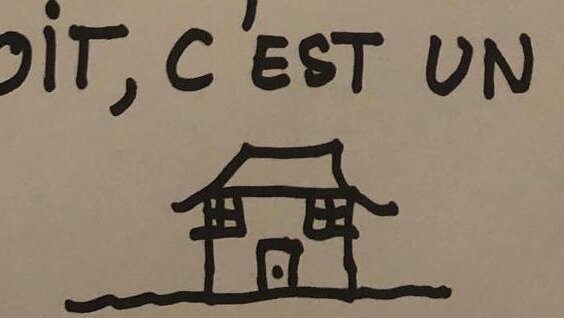 OIT, C'EST UN